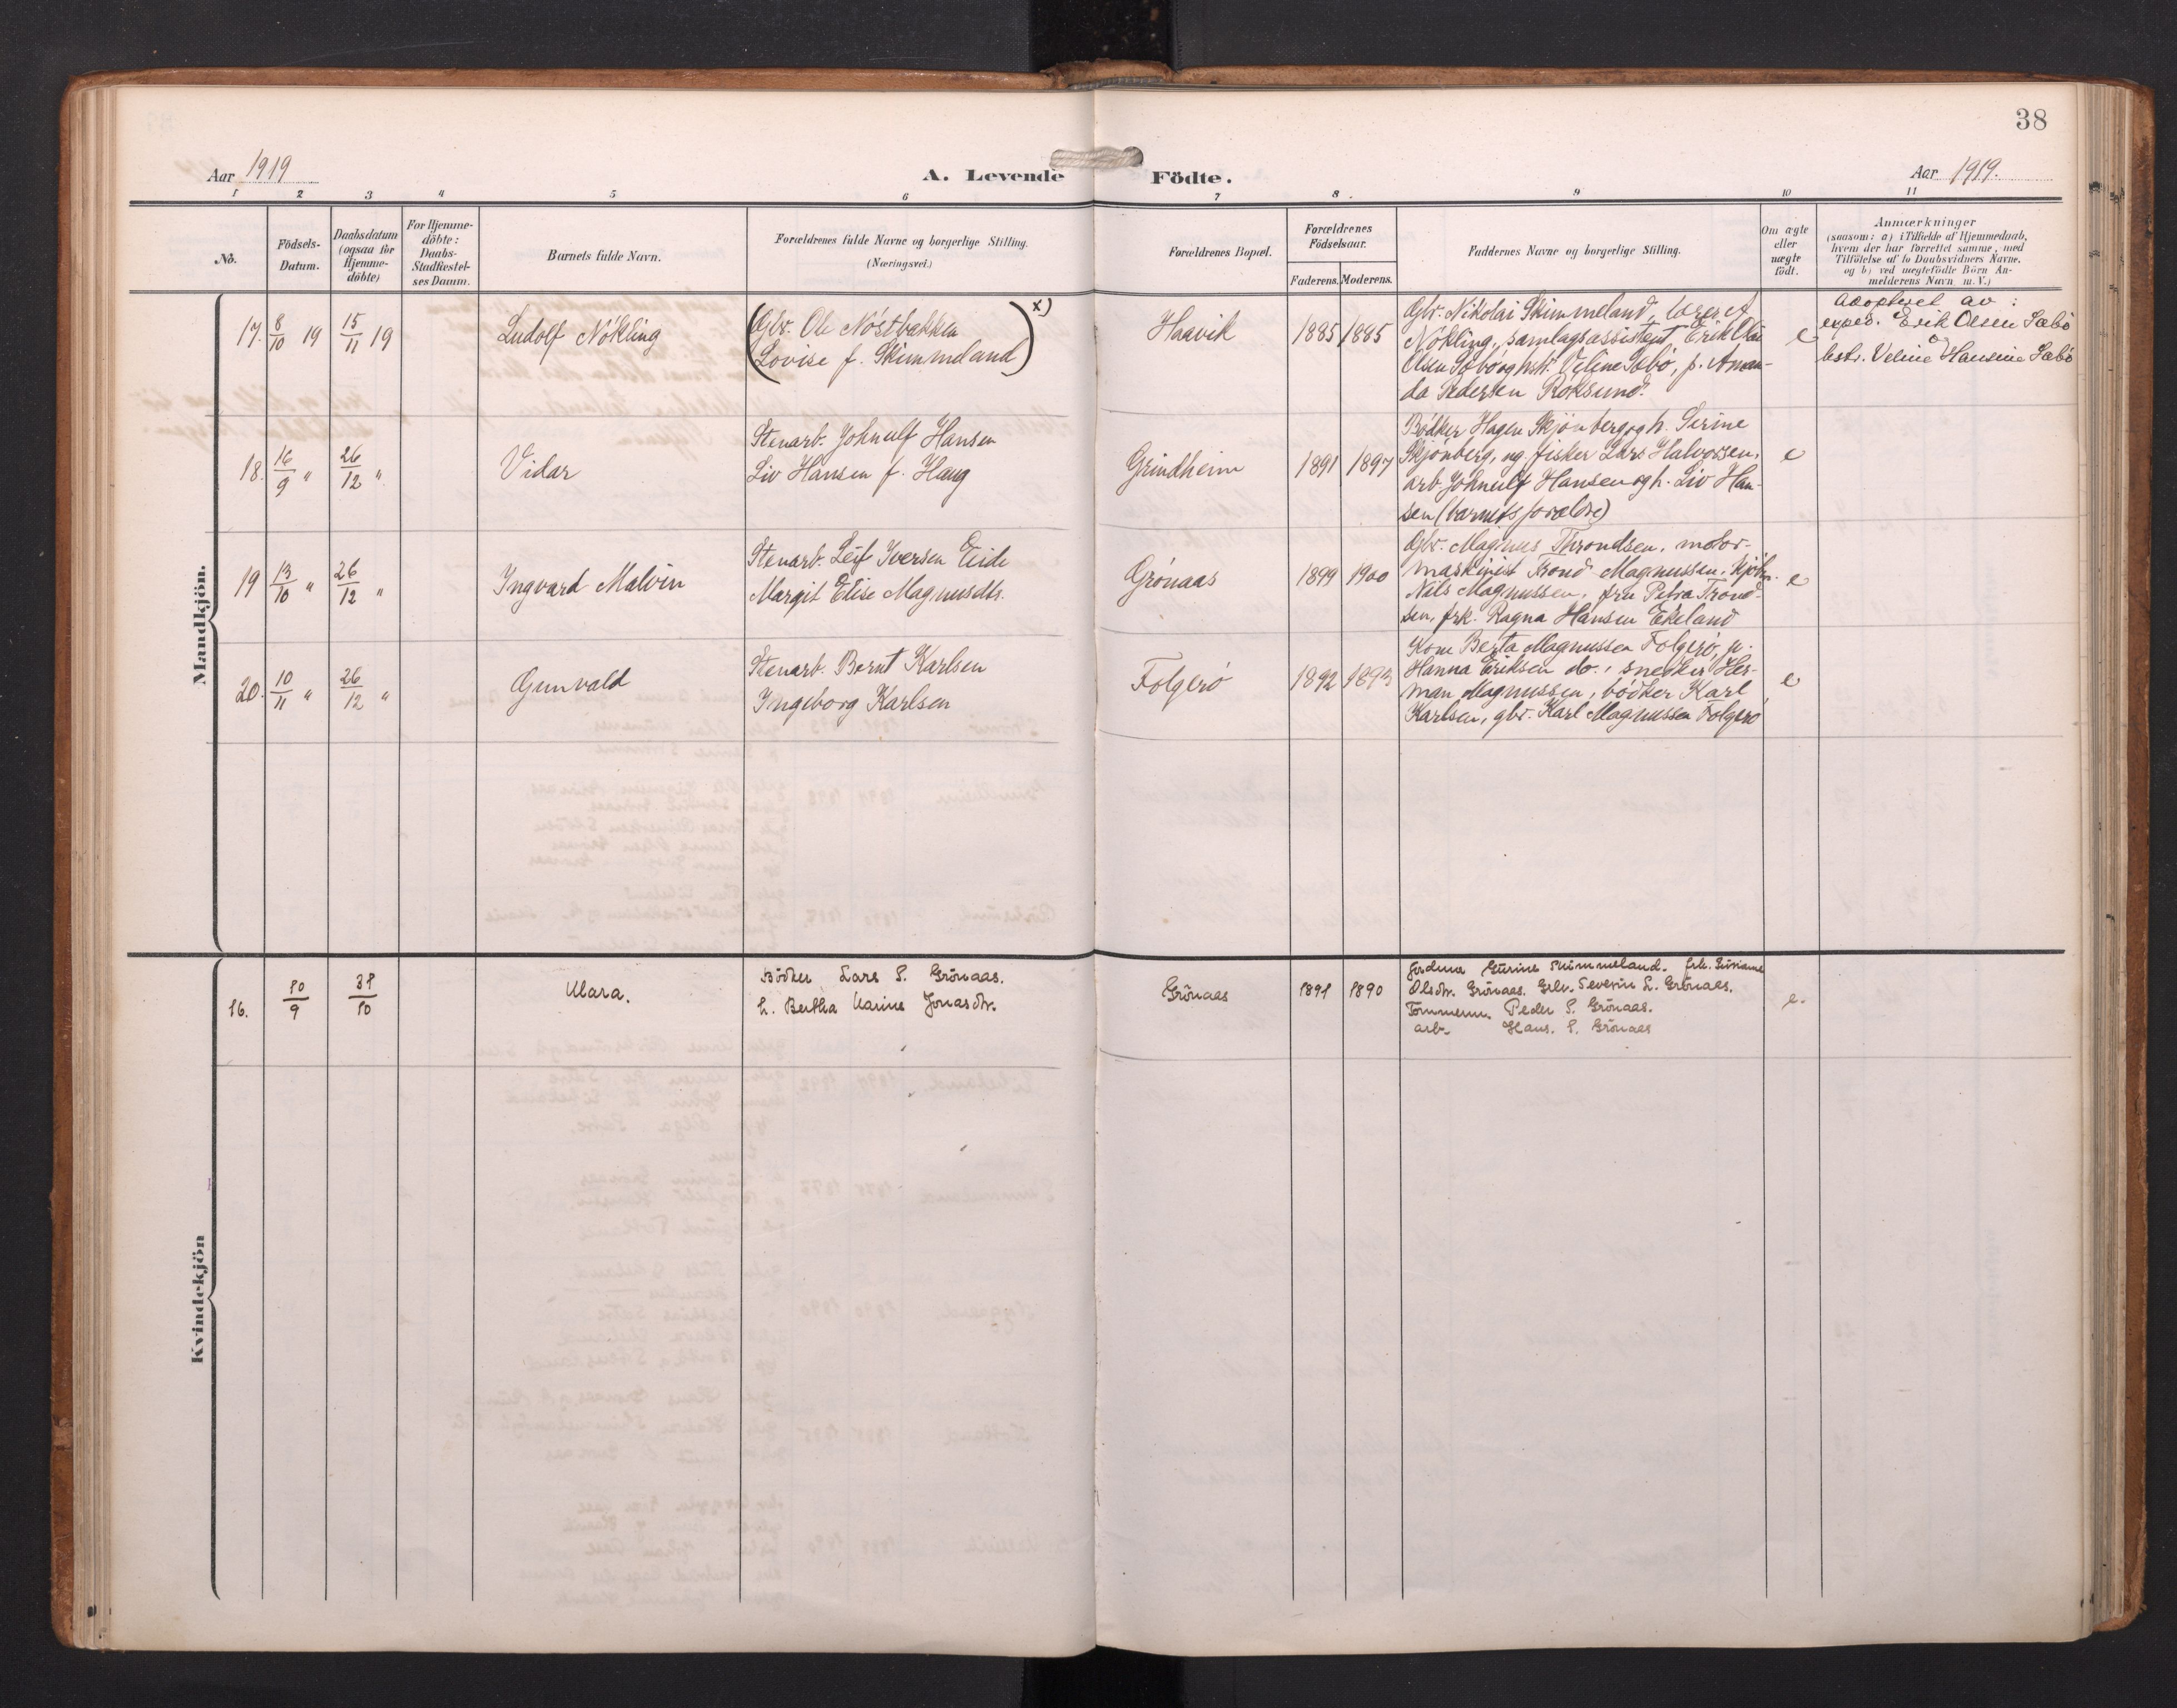 38
Aar 1919
A. Levende Födte.
Aar 1919.
1 2 3 4 5 6 7 8. 9 10 11
No.
Födsels-
Datum.
Daabsdatum
(ogsaa for
Hjemme-
döbte)
For Hjemme-
döbte:
Daabs-
Stadfæstel-
ses Datum.
Barnets fulde Navn.
Forældrenes fulde Navne og borgerlige Stilling.
(Næringsvei.)
Forældrenes Bopæl.
Forældrenes
Födselsaar.
Faderens. Moderens.
Faddernes Navne og borgerlige Stilling.
Om ægte
eller
uægte
födt.
Anmærkninger
(saasom: a) i Tilfælde af Hjemmedaab,
hvem der har forrettet samme, med
Tilföielse af to Daabsvidners Navne.
og b) ved uægtefödte Börn An-
melderens Navn m. V.)
Mandkjön.
17. 8/10 19 15/11 19
Ludolf Nökling
(Gbr. Ole Nöstbakken
Lovise f. Skimmeland) x)
Haavik
1885 1885
Gbr. Nikolai Skimmeland, lærer A
Nökling, samlagsassistent Erik
Olsen Sæbö og hstr. Veline Sæbö, p. Aman-
da Pedersen Röksund.
e
Adopteret av:
exped. Erik Olsen Sæbö
o
hstr. Veline Hansine Sæbö
18. 16/9 " 26/12 "
Vidar
Stenarb. Johnulf Hansen
Liv Hansen f. Haug
Grindheim
1891 1897
Bödker Hagen Skjönberg og h. Serine
Skjönberg, ug. fisker Lars Halvorsen,
arb. Johnulf Hansen og h. Liv Han-
sen (barnets forældre)
e
19 13/10 " 26/12 "
Ingvard Malvin
Stenarb. Leif Iversen Eide
Margit Elise Magnusdtr.
Grönaas
1899 1900
Gbr. Magnus Throndsen, motor-
maskinist Trond Magnussen, kjöbm.
Nils Magnussen, fru Petra Trond-
sen, frk. Ragna Hansen Ekeland
e
20. 10/11 " 26/12 "
Gunvald
Stenarb. Bernt Karlsen
Ingeborg Karlsen
Folgerö
1892 1893
Kone Berta Magnussen Folgerö, p.
Hanna Eriksen do., snedker Her-
man Magnussen, bödker Karl
Karlsen, gbr. Karl Magnussen Folgerö
e
Kvindekjön
16. 10/9 31/10
Klara.
Bödker Lars P. Grönaas.
h. Bertha Karine Jonasdtr.
Grönaas
1891 1890
Jordmor Gurine Skimmeland. frk.
Olsdtr. Grönaas. Gbr. Severin L. Grönaas.
Tömmerm. Peder P. Grönaas.
arb. Hans. P. Grönaas
e.